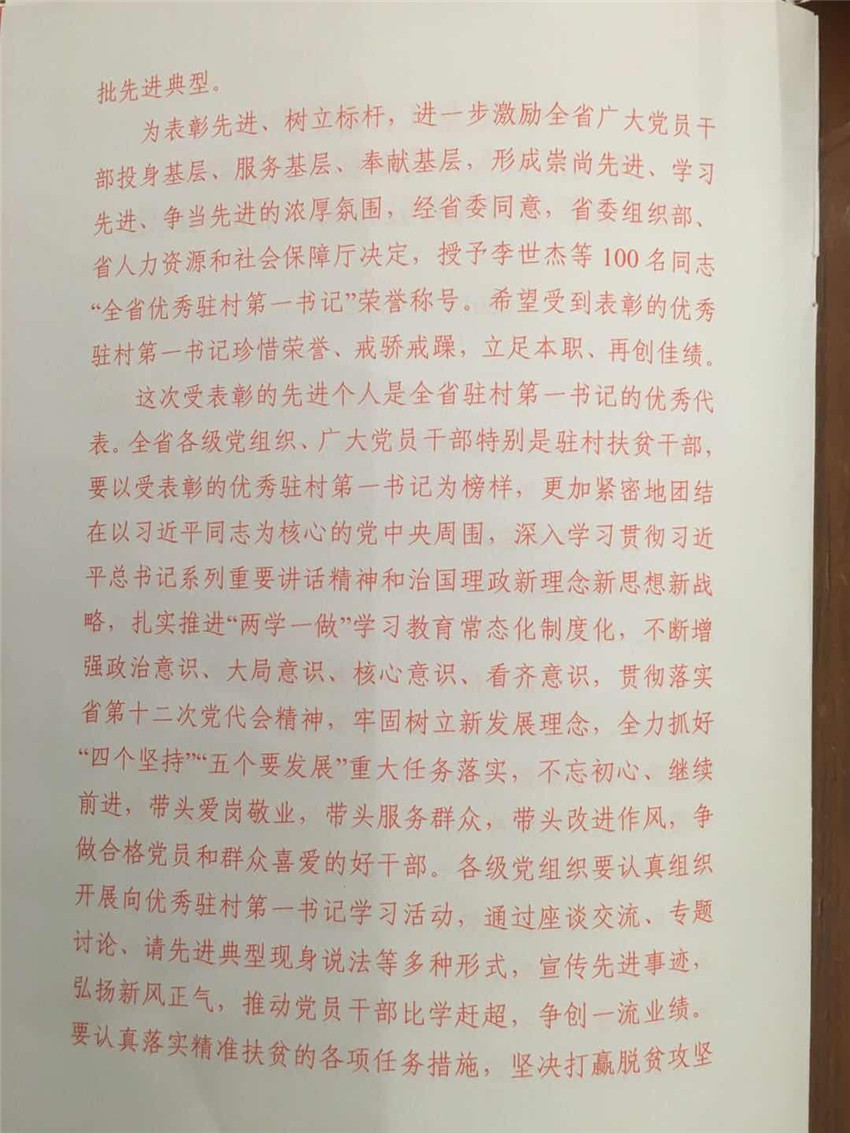 批先进典型。
为表彰先进、树立标杆，进一步激励全省广大党员干
部投身基层、服务基层、奉献基层，形成崇尚先进、学习
先进、争当先进的浓厚氛围，经省委同意，省委组织部、
省人力资源和社会保障厅决定，授予李世杰等100名同志
“全省优秀驻村第一书记”荣誉称号。希望受到表彰的优秀
驻村第一书记珍惜荣誉、戒骄戒躁，立足本职、再创佳绩。
这次受表彰的先进个人是全省驻村第一书记的优秀代
表。全省各级党组织、广大党员干部特别是驻村扶贫干部，
要以受表彰的优秀驻村第一书记为榜样，更加紧密地团结
在以习近平同志为核心的党中央周围，深入学习贯彻习近
平总书记系列重要讲话精神和治国理政新理念新思想新战
略，扎实推进“两学一做”学习教育常态化制度化，不断增
强政治意识、大局意识、核心意识、看齐意识，贯彻落实
省第十二次党代会精神，牢固树立新发展理念，全力抓好
“四个坚持”“五个要发展”重大任务落实，不忘初心、继续
前进，带头爱岗敬业，带头服务群众，带头改进作风，争
做合格党员和群众喜爱的好干部。各级党组织要认真组织
开展向优秀驻村第一书记学习活动，通过座谈交流、专题
讨论、请先进典型现身说法等多种形式，宣传先进事迹，
弘扬新风正气，推动党员干部比学赶超，争创一流业绩。
要认真落实精准扶贫的各项任务措施，坚决打赢脱贫攻坚